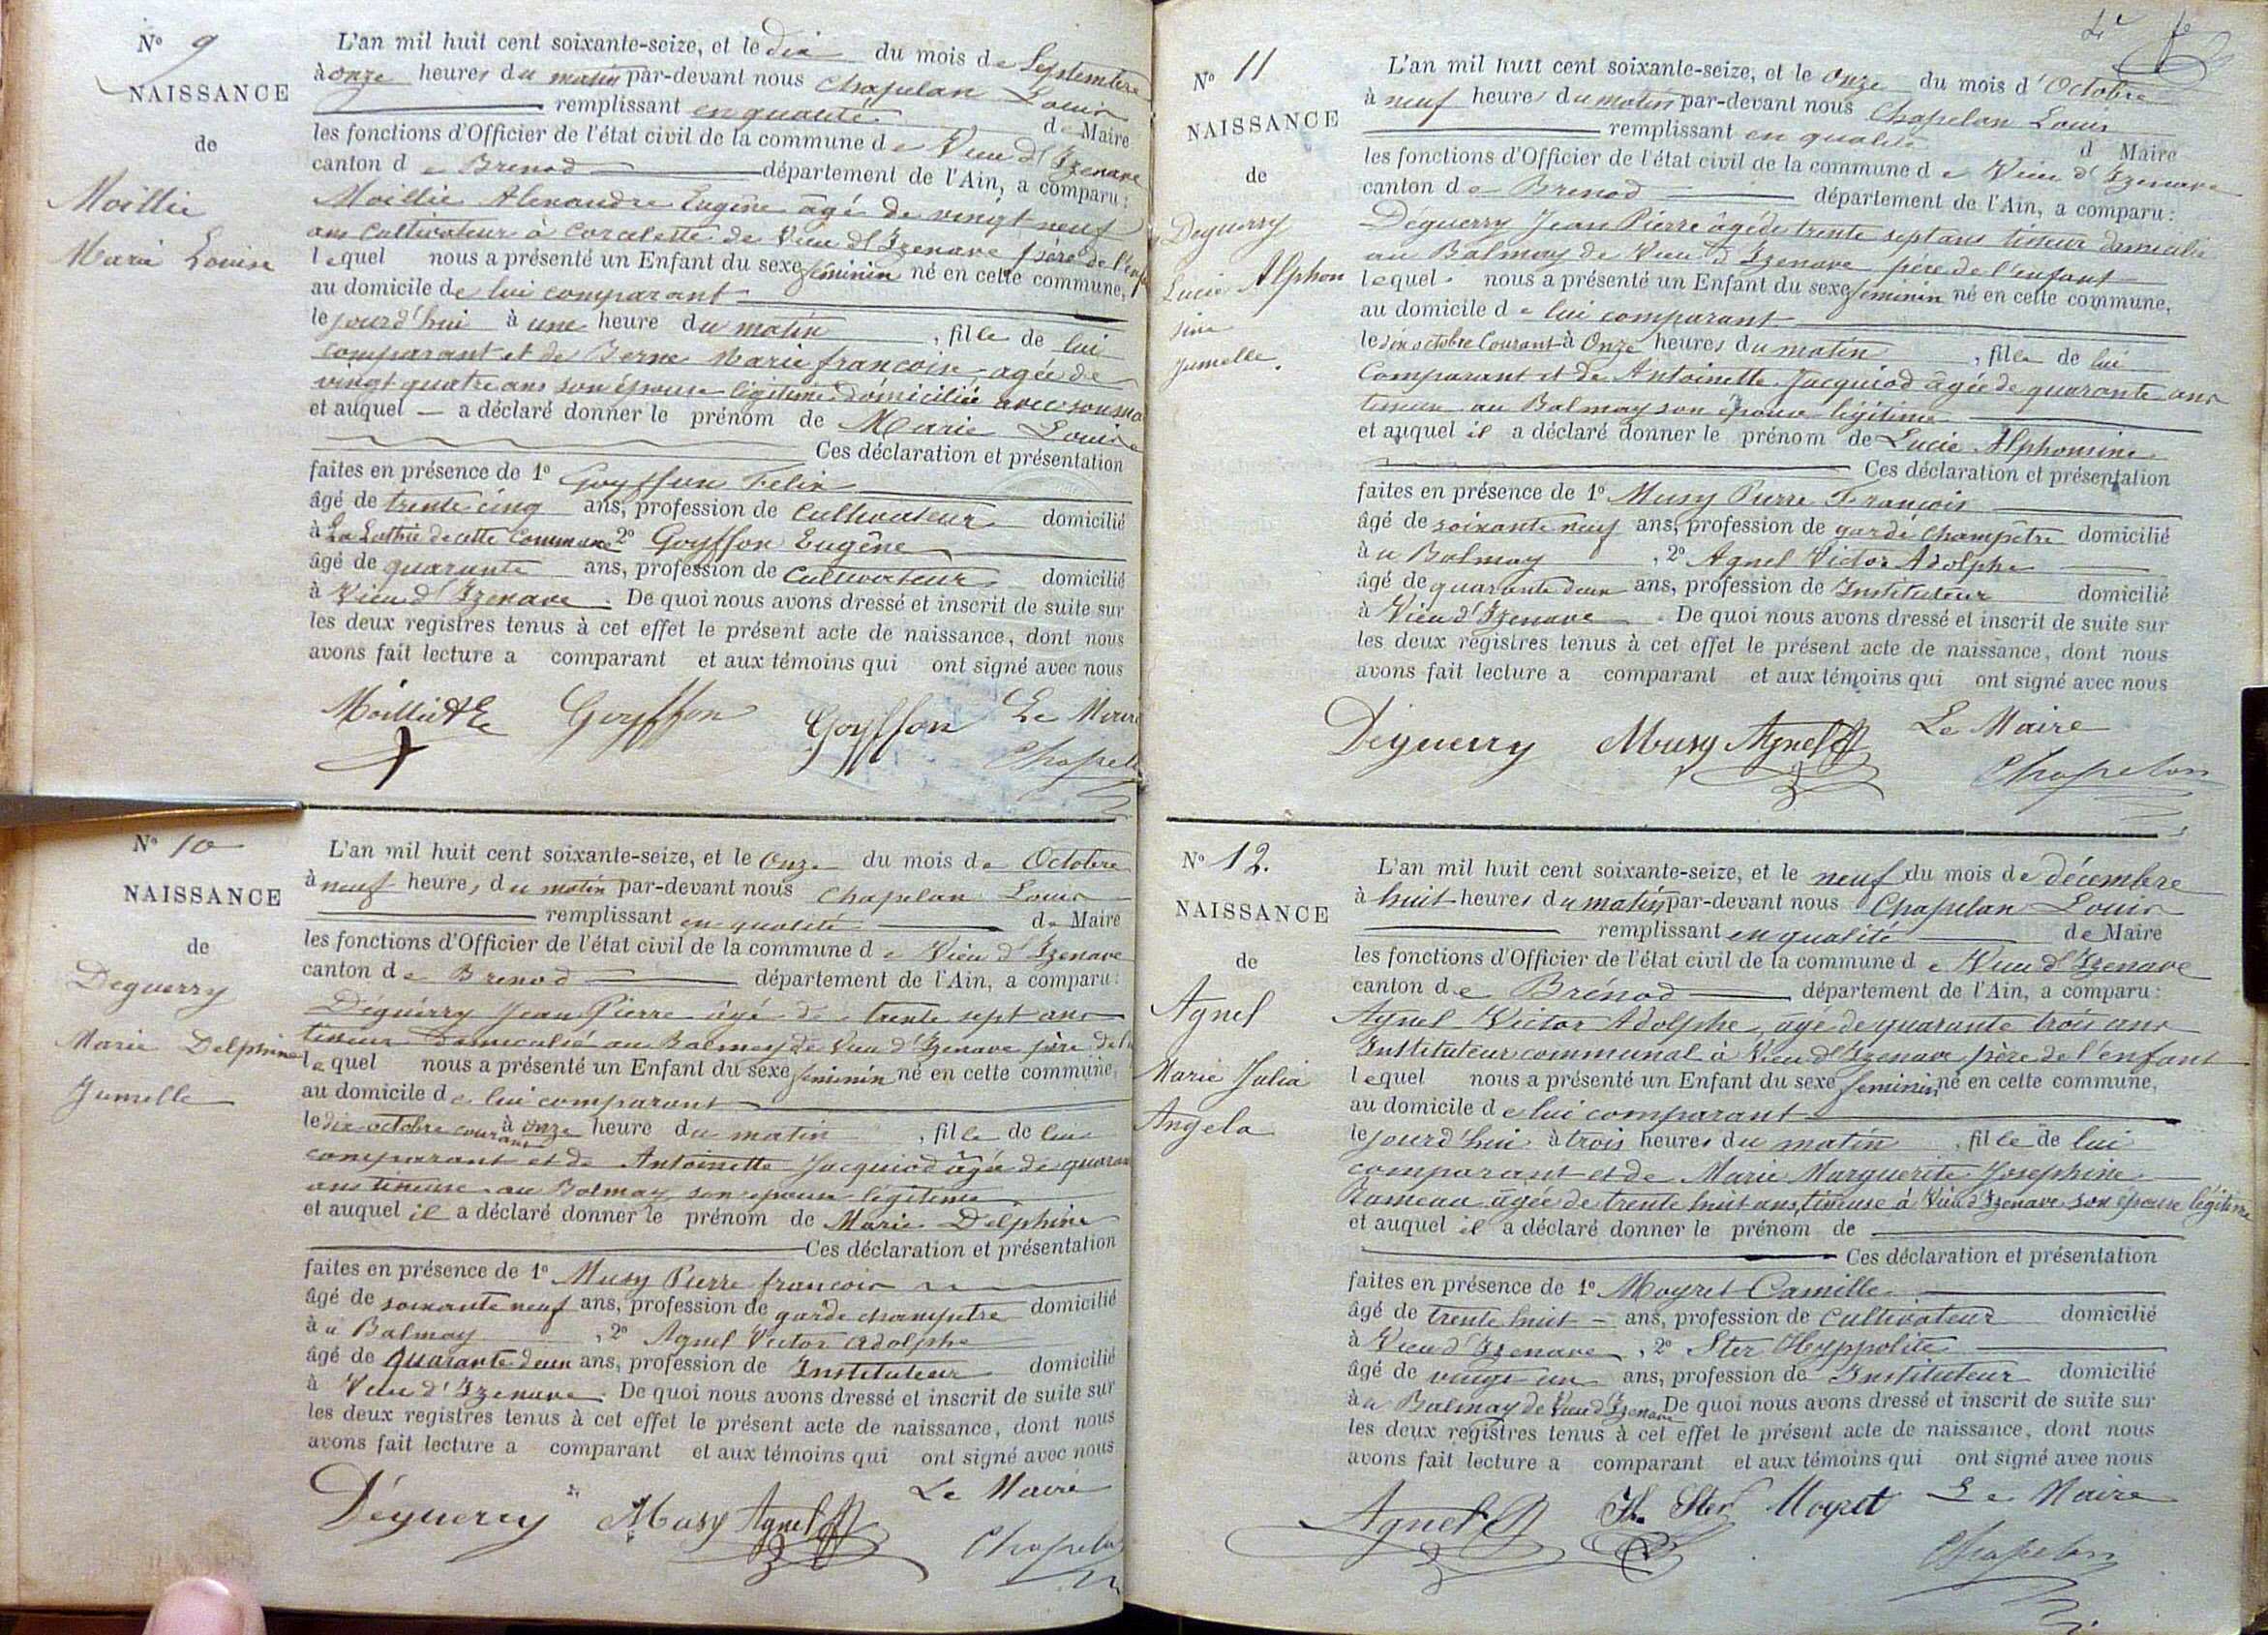 N° 9
NAISSANCE
de
Moillie
Marie Louise
L'an mil huit cent soixante-seize, et le dix du mois de Septembre
à onze heures du matin par-devant nous Chapelan Louis
remplissant en qualité de Maire
les fonctions d'Officier de l'état civil de la commune de Vieu d'Izenave
canton de Brenod département de l'Ain, a comparu :
Moillie Alexandre Eugêne âgé de vingt neuf
ans Cultivateur à Corcelette de Vieu d'Izenave père de l'enfa
lequel nous a présenté un Enfant du sexe féminin né en cette commune,
au domicile de lui comparant
le jourd'hui à une heure du matin , fille de lui
comparant et de Berne Marie françoise agée de
vingt quatre ans son épouse légitime domiciliée avec son ma
et auquel a déclaré donner le prénom de Marie Louise
Ces déclaration et présentation
faites en présence de 1° Goyffon Felix
âgé de trente cinq ans, profession de Cultivateur domicilié
à La Lathie de cette Commune 2° Goyffon Eugêne
âgé de quarante ans, profession de Cultivateur domicilié
à Vieu d'Izenave. De quoi nous avons dressé et inscrit de suite sur
les deux registres tenus à cet effet le présent acte de naissance, dont nous
avons fait lecture a comparant et aux témoins qui ont signé avec nous
Moillie A E Goyffon Goyffon Le Maire
Chapel
N° 10
NAISSANCE
de
Deguerry
Marie Delphine
Jumelle
L'an mil huit cent soixante-seize, et le Onze du mois de Octobre
à neuf heures du matin par-devant nous Chapelan Louis
remplissant en qualité de Maire
les fonctions d'Officier de l'état civil de la commune de Vieu d'Izenave
canton de Brenod département de l'Ain, a comparu :
Déguérry Jean Pierre âgé de trente sept ans
tisseur domicilié au Balmay de Vieu d'Izenave père de l'e
lequel nous a présenté un Enfant du sexe féminin né en cette commune,
au domicile de lui comparant
le dix octobre courant à onze heure du matin , fille de lui
comparant et de Antoinette Jacquiod âgée de quaran
ans tisseuse au Balmay son épouse légitime
et auquel il a déclaré donner le prénom de Marie Delphine
Ces déclaration et présentation
faites en présence de 1° Musy Pierre françois
âgé de soixante neuf ans, profession de garde champêtre domicilié
à u Balmay , 2° Agnel Victor Adolphe
âgé de Quarante deux ans, profession de Instituteur domicilié
à Vieu d'Izenave. De quoi nous avons dressé et inscrit de suite sur
les deux registres tenus à cet effet le présent acte de naissance, dont nous
avons fait lecture a comparant et aux témoins qui ont signé avec nous
Déguerry Musy Agnel Le Maire
Chapela
N° 11
NAISSANCE
de
Deguerry
Lucie Alphon
sine
Jumelle.
L'an mil huit cent soixante-seize, et le Onze du mois d'Octobre
à neuf heures du matin par-devant nous Chapelan Louis
remplissant en qualité d Maire
les fonctions d'Officier de l'état civil de la commune de Vieu d'Izenave
canton de Brenod département de l'Ain, a comparu :
Déguerry Jean Pierre âgé de trente sept ans tisseur domicilié
au Balmay de Vieu d'Izenave père de l'enfant
lequel nous a présenté un Enfant du sexe féminin né en cette commune,
au domicile de lui comparant
le dix octobre Courant à Onze heures du matin , fille de lui
Comparant et de Antoinette Jacquiod âgée de quarante ans
tisseuse au Balmay son épouse légitime
et auquel il a déclaré donner le prénom de Lucie Alphonsine
Ces déclaration et présentation
faites en présence de 1° Musy Pierre François
âgé de soixante neuf ans, profession de garde champêtre domicilié
à u Balmay , 2° Agnel Victor Adolphe
âgé de quarante deux ans, profession de Instituteur domicilié
à Vieu d'Izenave . De quoi nous avons dressé et inscrit de suite sur
les deux registres tenus à cet effet le présent acte de naissance, dont nous
avons fait lecture a comparant et aux témoins qui ont signé avec nous
Déguerry Musy Agnel Le Maire
Chapelan
N° 12.
NAISSANCE
de
Agnel
Marie Julia
Angela
L'an mil huit cent soixante-seize, et le neuf du mois de décembre
à huit heures du matin par-devant nous Chapelan Louis
remplissant en qualité de Maire
les fonctions d'Officier de l'état civil de la commune de Vieu d'Izenave
canton de Brénod département de l'Ain, a comparu :
Agnel Victor Adolphe, âgé de quarante trois ans
Instituteur communal à Vieu d'Izenave père de l'enfant
lequel nous a présenté un Enfant du sexe féminin né en cette commune,
au domicile de lui comparant
le jourd'hui à trois heures du matin , fille de lui
comparant et de Marie Marguerite Joséphine
Rameau agée de trente huit ans, tisseuse à Vieu d'Izenave son épouse légitime
et auquel il a déclaré donner le prénom de
Ces déclaration et présentation
faites en présence de 1° Moyret Camille
âgé de trente huit ans, profession de Cultivateur domicilié
à Vieu d'Izenave , 2° Ster Hyppolite
âgé de vingt un ans, profession de Instituteur domicilié
à u Balmay de Vieu d'Izenave De quoi nous avons dressé et inscrit de suite sur
les deux registres tenus à cet effet le présent acte de naissance, dont nous
avons fait lecture a comparant et aux témoins qui ont signé avec nous
Agnel H. Ster Moyret Le Maire
Chapelan